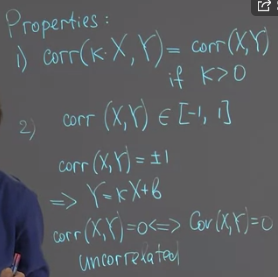 Properties:
1) corr(k·X,Y) = corr(X,Y)
if k>0
2) corr (X,Y) ∈ [-1, 1]
corr(X,Y) = ±1
=> Y=kX+b
corr(X,Y)=0 <=> Cov(X,Y)=0
uncorrelated